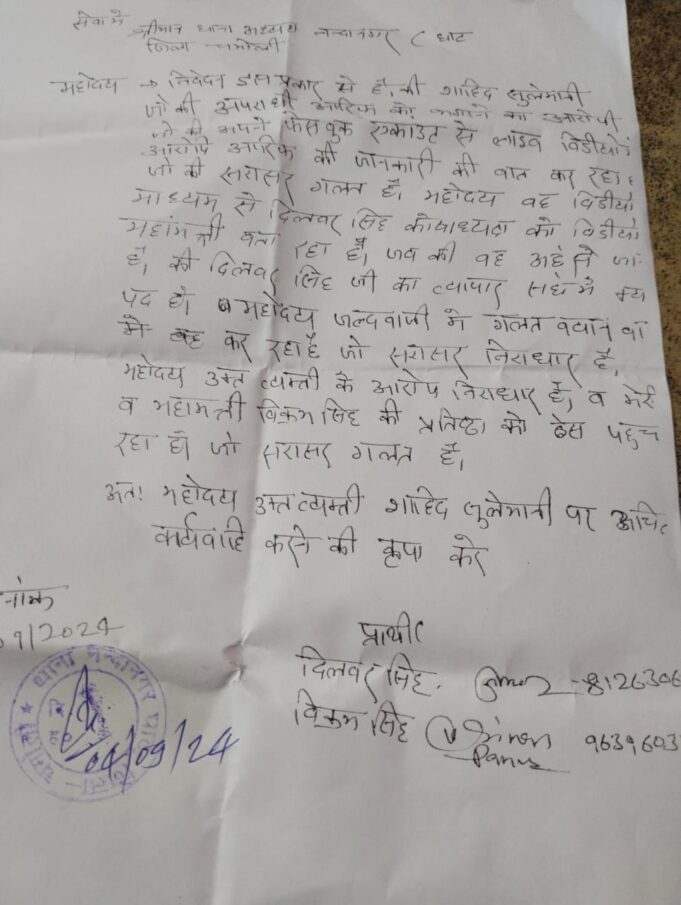 सेवा मे
श्रीमान थाना अध्यक्ष नन्दानगर (घाट
जिला चमोली
महोदय → निवेदन इस प्रकार से है, की शाहिद सुलेमानी
जो की अपराधी आरिफ को भगाने का आरोपी
जो की अपने फेसबुक एकाउट से लाइव विडीयो
आरोपि आरिफ की जानकारी की बात कर रहा
जो की सरासर गलत है। महोदय वह विडीयो
माध्यम से दिलवर सिंह कोषाध्यक्ष को विडीयो
महामंत्री बता रहा है, जब की वह
है, की दिलवर सिंह जी का व्यापार संघ मे
पद है। महोदय जल्दवाजी मे गलत वयान
मे कर रहा है जो सरासर निराधार है,
महोदय उक्त व्यक्ती के आरोप निराधार है, व मेरी
व महामन्त्री विक्रम सिंह की प्रतिष्ठा को ठेस पहुच
रहा है। जो सरासर गलत है,
अतः महोदय उक्त व्यक्ती शाहिद सुलेमानी पर उचित
कार्यवाहि करने की कृपा करे
नांक
09/2024
प्रार्थी
दिलवर सिंह. 8126306
विक्रम सिंह 9639603
थाना नन्दानगर घाट
जिला-चमोली
04/09/24